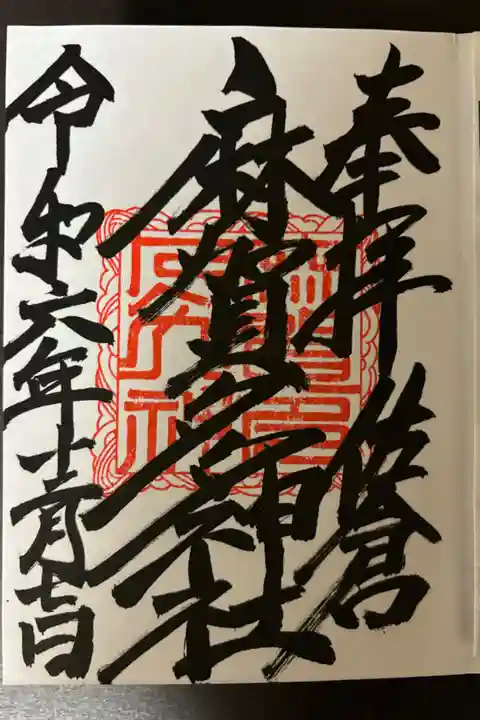 奉拝 佐倉
麻賀多神社
令和六年十二月吉日